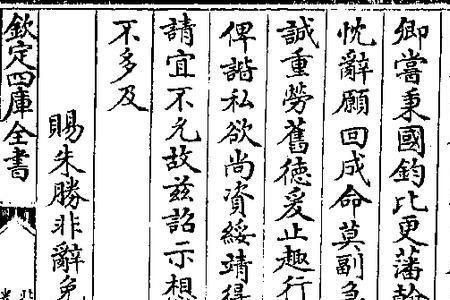 卿嘗秉國鈞比更藩
忱辭願回成命莫副
誠重勞舊徳爰止趣行
俾諧私欲尚資綏靖得
請宜不允故兹詔示想
不多及
賜朱勝非辭免
欽定四庫全書